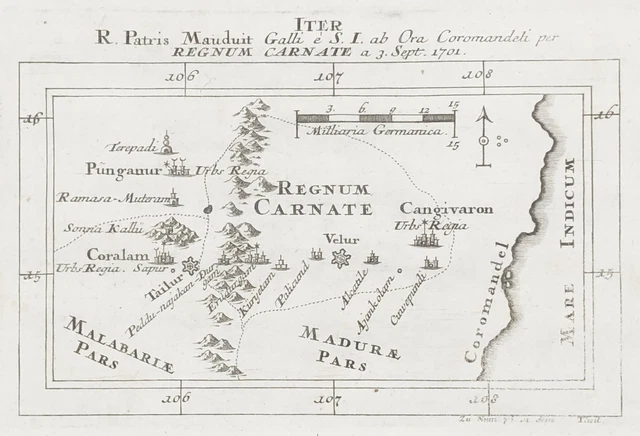 ITER
R. Patris Mauduit Galli è S. I. ab Ora Coromandeli per
REGNUM CARNATE a 3. Sept. 1701.
106 107 108
16 16
3. 6. 9 12 15
Milliaria Germanica.
15
Terepadi
Pünganur Urbs Regia
Ramasa-Muteram
REGNUM
CARNATE
Cangivaron
Urbs Regia
Sonna Kalli
Velur
Coralam
Urbs Regia. Sapur
15 15
Tailur
Peddu-najakan-Durgam
Kuryetam
Palicand
Alcatile
Ajankolam
Coromandel
MARE INDICUM
MALABARIÆ
PARS
MADURÆ
PARS
106 107 108